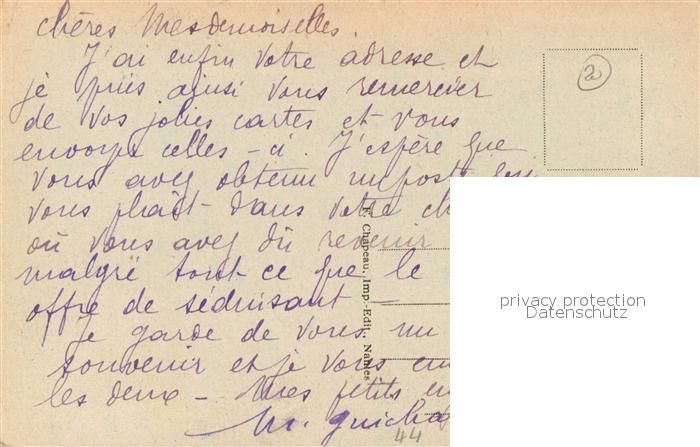 chères Mesdemoiselles.
J'ai enfin votre adresse et
je puis ainsi vous remercier
de vos jolies cartes et vous
envoyer celles-ci. J'espère que
vous avez obtenu un poste
vous plaît dans votre
où vous avez dû revenir
malgré tout ce que le
offre de séduisant -
Je garde de vous un
souvenir et je vous
les deux - Mes petits
M.
2
F. Chapeau, Imp.-Edit., Nantes
44
privacy protection
Datenschutz